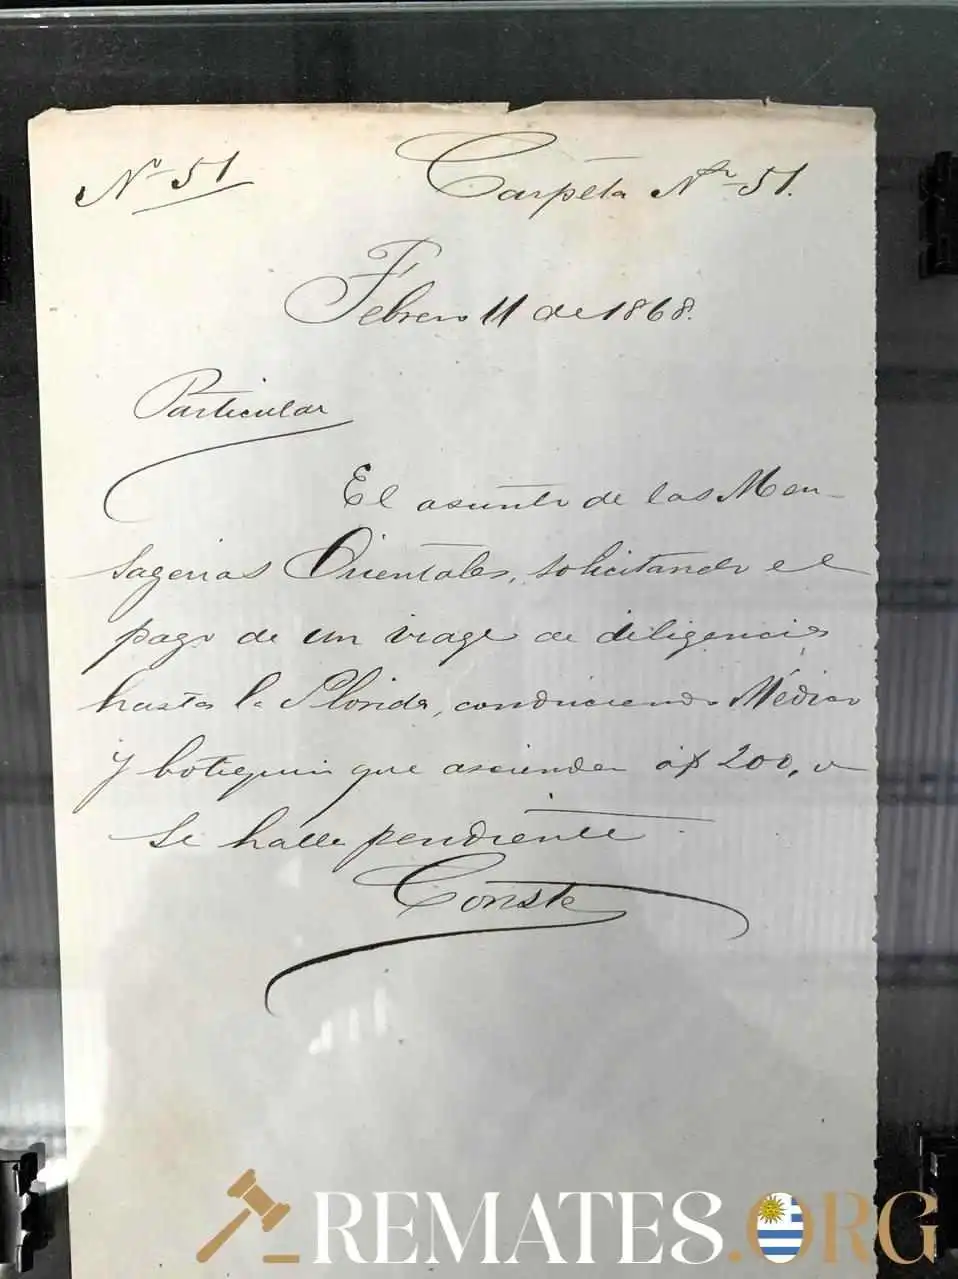 Nº 51
Carpeta Nº 51.
Febrero 11 de 1868.
Particular
El asunto de las Men-
sagerias Orientales, solicitando el
pago de un viage de diligencia
hasta la Florida, conduciendo Médico
y botiquin que asciende á $ 200, 
se halla pendiente
Conste
REMATES.ORG